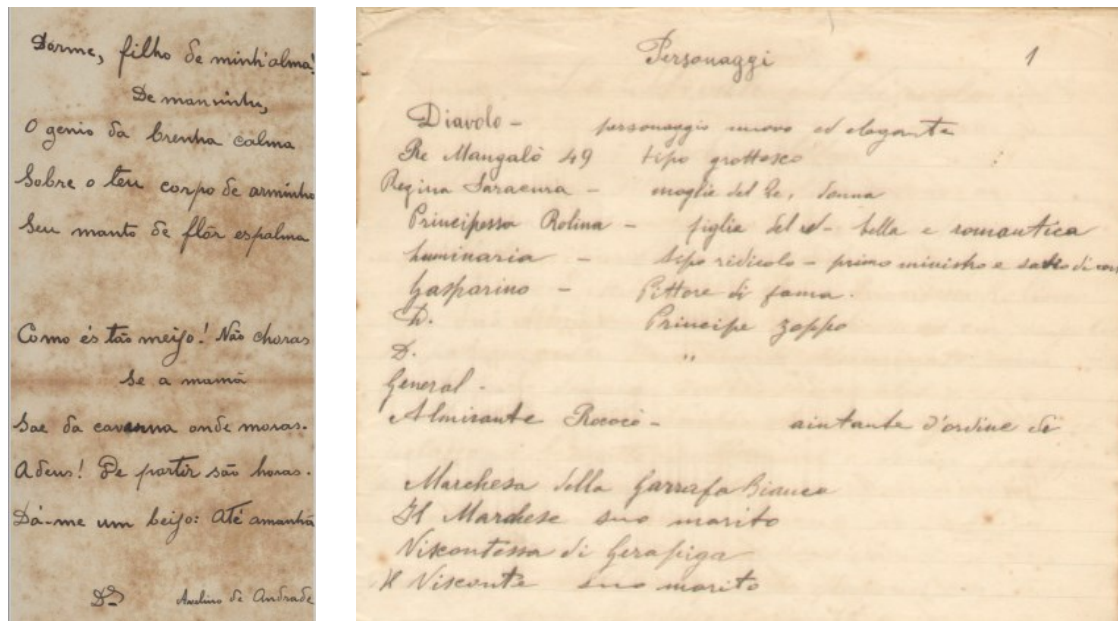 Dorme, filho de minh'alma!
De mansinho,
O genio da brenha calma
Sobre o teu corpo de arminho
Seu manto de flôr espalma
Como és tão meigo! Não choras
Se a mamã
Sae da caverna onde moras.
Adeus! De partir são horas.
Dá-me um beijo: Até amanhã
Dr. Avelino de Andrade
Personaggi 1
Diavolo - personaggio nuovo ed elegante
Re Mangalô 49 tipo grottesco
Regina Saracura - moglie del Re, donna
Principessa Rolina - figlia del - bella e romantica
Luminaria - tipo ridicolo - primo ministro e
Gasparino - Pittore di fama.
D. Principe zoppo
D. "
General -
Almirante Rococò - aiutante d'ordine di
Marchesa della Garrafa Bianca
Il Marchese suo marito
Viscontessa di Gerapiga
Il Visconte suo marito